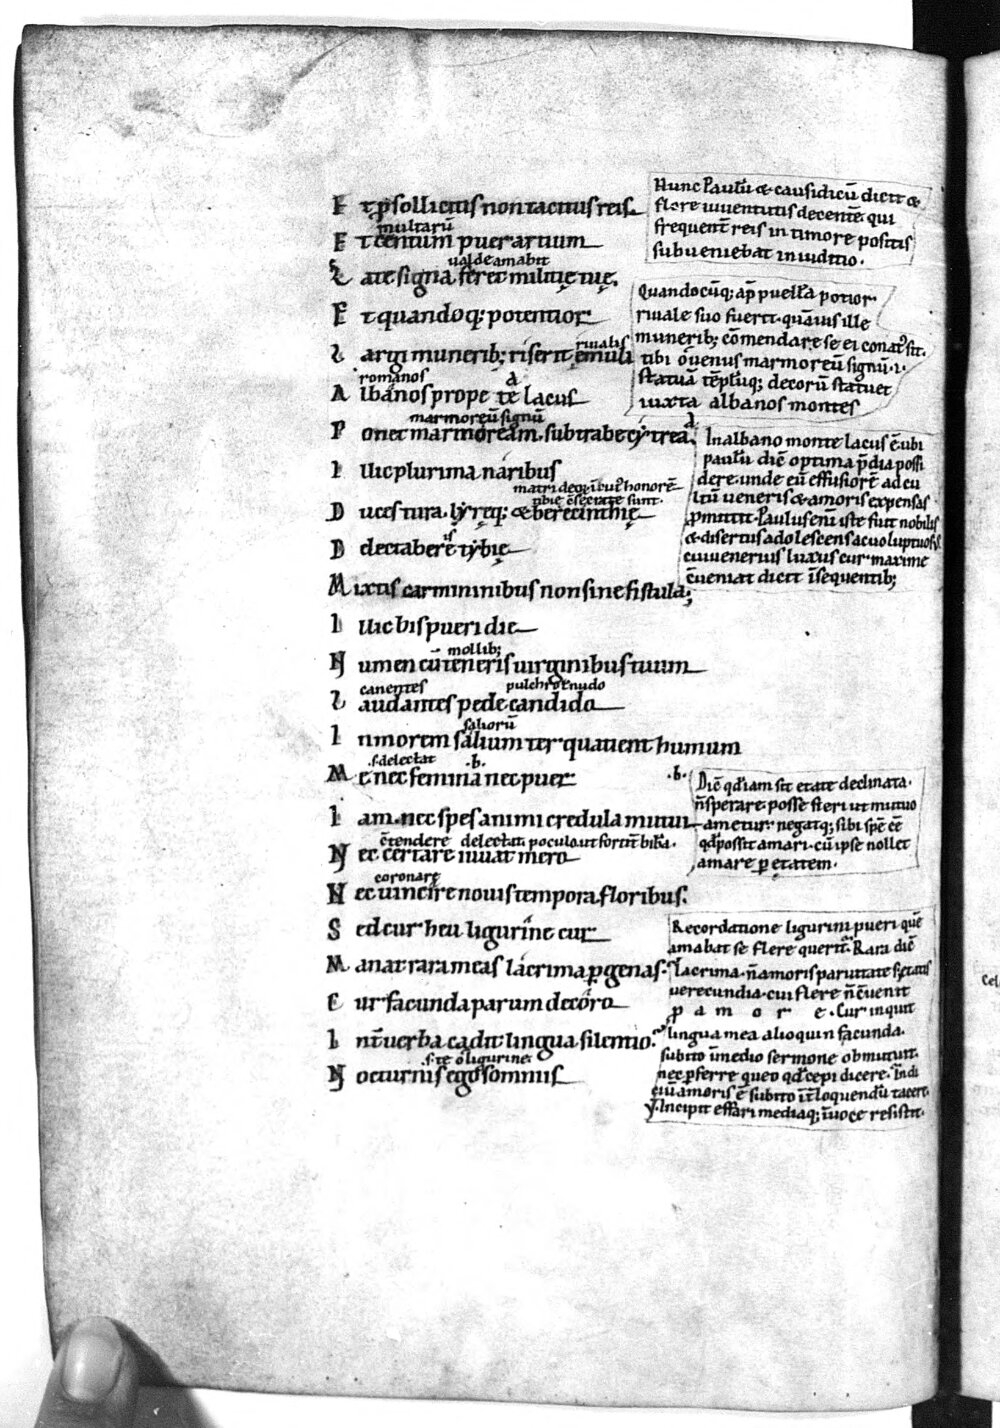 E t p sollicitis non tacitus reis
multarū
E t centum puer artium
ualde amabit
L ate signa feret militię tuę.
E t quandoq; potentior
riualis
L argi munerib; riserit emuli
romanos
A lbanos prope te lacus
marmoreū signū
P onet marmoream. sub trabe cytrea.
I llic plurima naribus
D uces tura. lyręq; & berecinthię
D electabere tybię
M ixtis carmininibus non sine fistula;
I llic bis pueri die
mollib;
N umen cū teneris uirginibus tuum
canentes
L audantes pede candido
saliorū
I n morem salium ter quatient humum
.s. delectat .b.
M e nec femina nec puer
I am. nec spes animi credula mutui
N ec certare iuuat mero
coronare
N ec uincire nouis tempora floribus.
S ed cur heu ligurine cur
M anat rara meas lacrima p genas.
C ur facunda parum decoro
I nt̄ uerba cadit lingua silentio.
.s. te o ligurine.
N octurnis ego somniis
Hunc Paulū & causidicū dicit &
flore iuuentutis decentē qui
frequent̄ reis in timore positis
subueniebat in iuditio.
Quandocūq; ap̄ puella potior
riuale suo fuerit. quāuis ille
munerib; cōmendare se ei conat̄ sit.
tibi o uenus marmoreū signū .i.
statuā tēplūq; decorū statuet
iuxta albanos montes
In albano monte lacus ē ubi
paulū dic̄ optima p̄dia possi
dere. unde eū effusiorē ad cu
ltū ueneris & amoris expensas
p̄mittit. Paulus enī iste fuit nobilis
& disertus adolescens ac uoluptuosus
cui uenerius luxus cur maxime
c̄ueniat dicit ī sequentib;
.b. Dic̄ qd̄ iam sit etate declinata.
n̄ sperare posse fieri ut mutuo
ametur. negatq; sibi spē ēē
qd̄ possit amari. cū ipse nollet
amare p ętatem.
Recordatione ligurini pueri quē
amabat se flere querit̄. Rara dic̄
lacrima. n̄ amoris paruitate
uerecundia. cui flere n̄ c̄uenit
p a m o r e. Cur inquit
lingua mea alioquin facunda.
subito ī medio sermone obmutuit.
nec p̄ferre queo qd̄ cepi dicere. Indi
ciū amoris ē subito īt̄ loquendū tacere.
V. Incipit effari mediaq; ī uoce resistit.